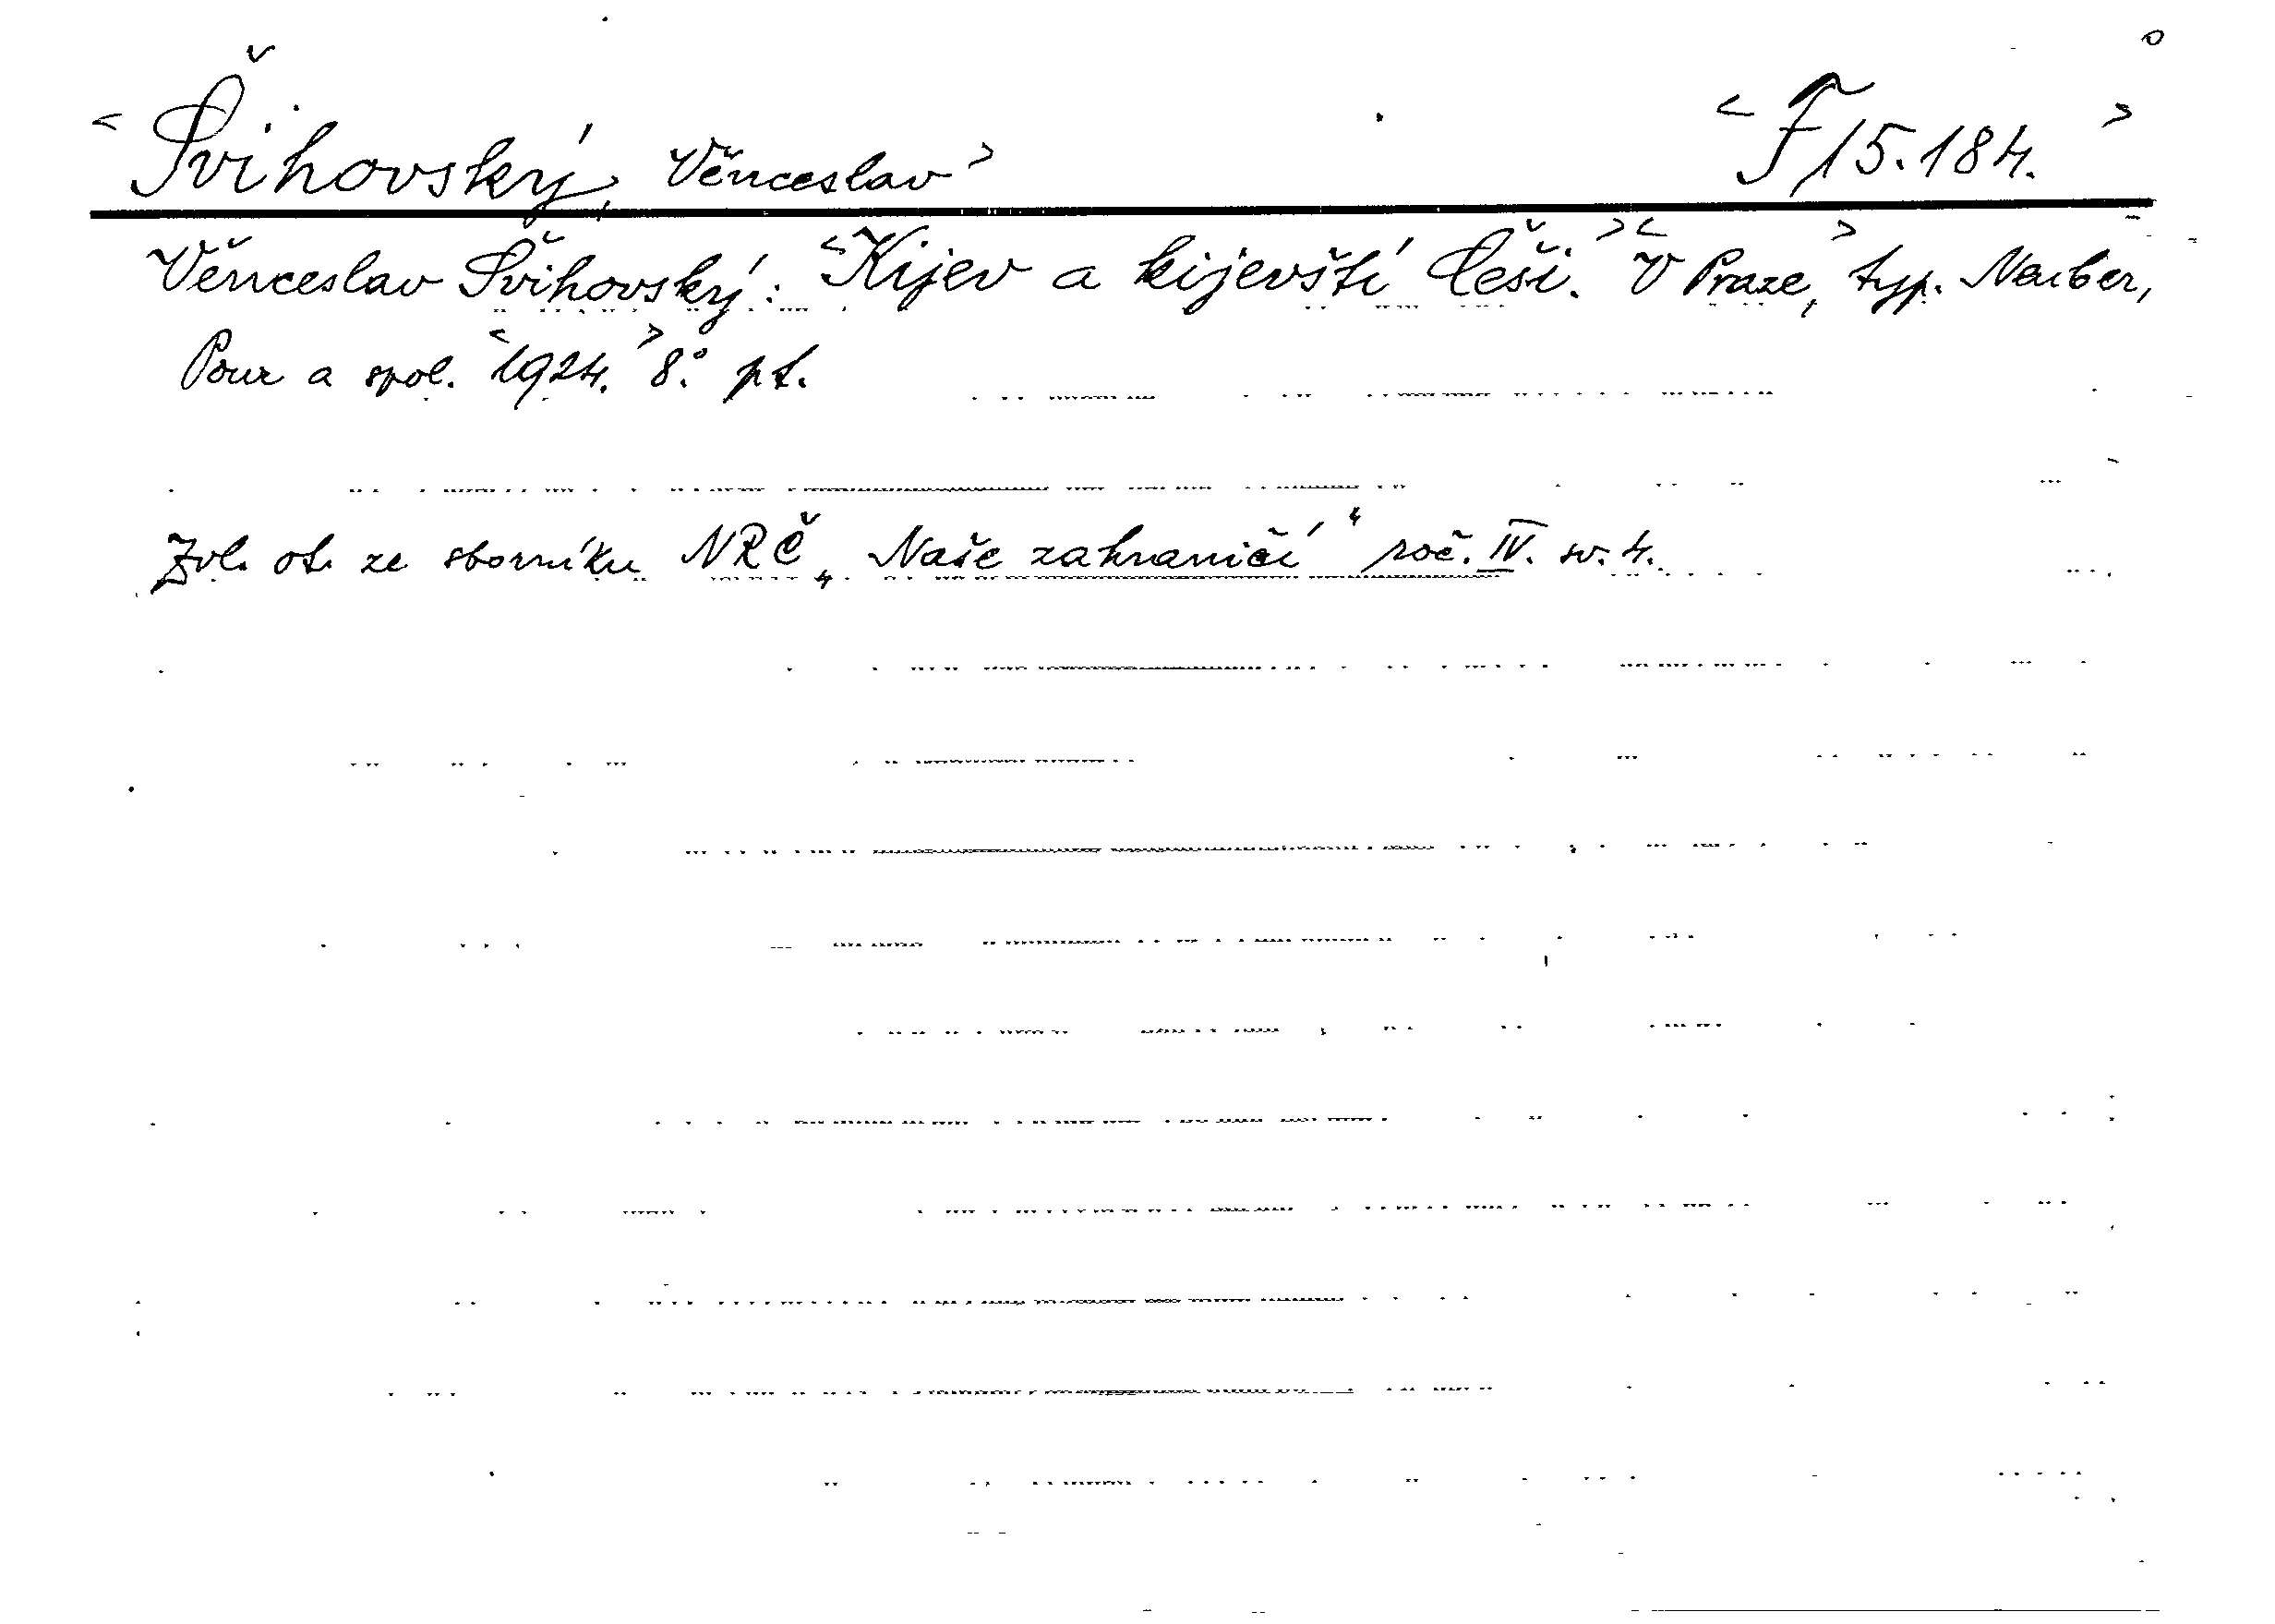 <Švihovský, Věnceslav> <F/15.184.>
Věnceslav Švihovský: <Kijev a kijevští Češi.> <V Praze,> typ. Neuber,
Pour a spol. <1924.> 8.° pt.
Zvl. ot. ze sborníku NRČ „Naše zahraničí“ roč. IV. sv. 4.